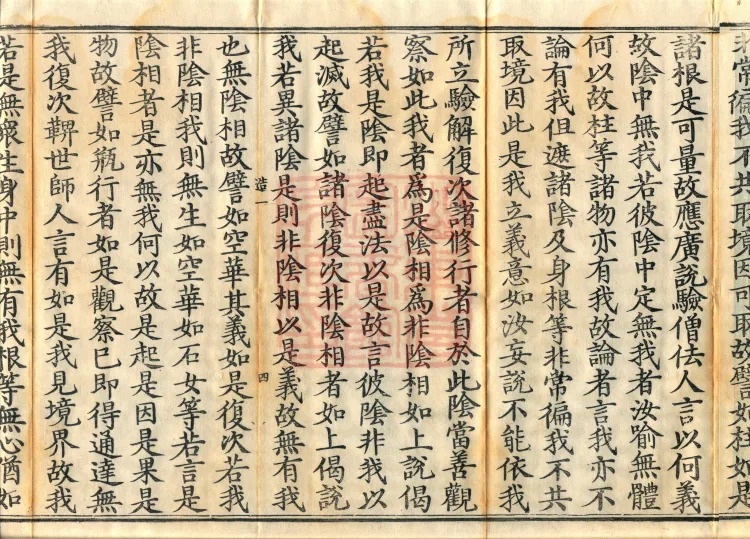 常徧我不共取境因可取故譬如柱如是
諸根是可量故應廣說驗僧佉人言以何義
故陰中無我若彼陰中定無我者汝喻無體
何以故柱等諸物亦有我故論者言我亦不
論有我但遮諸陰及身根等非常徧我不共
取境因此是我立義意如汝妄說不能依我
所立驗解復次諸修行者自於此陰當善觀
察如此我者爲是陰相爲非陰相如上說偈
若我是陰即起盡法以是故言彼陰非我以
起滅故譬如諸陰復次非陰相者如上偈說
我若異諸陰是則非陰相以是義故無有我
造一 四
也無陰相故譬如空華其義如是復次若我
非陰相我則無生如空華如石女等若言是
陰相者是亦無我何以故是起是因是果是
物故譬如瓶行者如是觀察已即得通達無
我復次鞞世師人言有如是我見境界故我
若是無生身中則無有我根等無心猶如